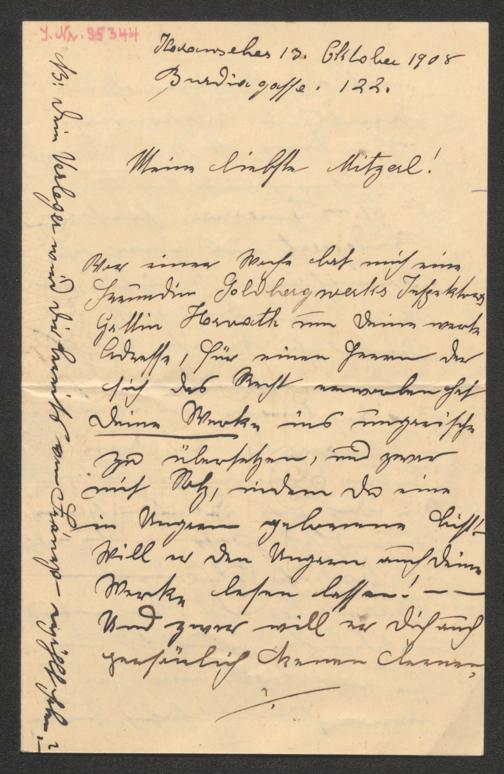 J. Nr. 95344
13. Oktober 1908
Burdiagasse. 122.
Meine liebste Mitzerl!
Vor einer Woche bat mich eine
Freundin Goldbergwerks Inspektors
Gattin Horvath um Deine werte
Adresse, für einen Herrn der
sich das Recht erworben hat
Deine Werke ins ungarische
zu übersetzen, und zwar
mit Stolz, indem Du eine
in Ungarn geborene bist!
Will er den Ungarn auch Deine
Werke lesen lassen! — —
Und zwar will er Dich auch
persönlich kennen lernen,
NB: Dein Verleger wird Dir bereits